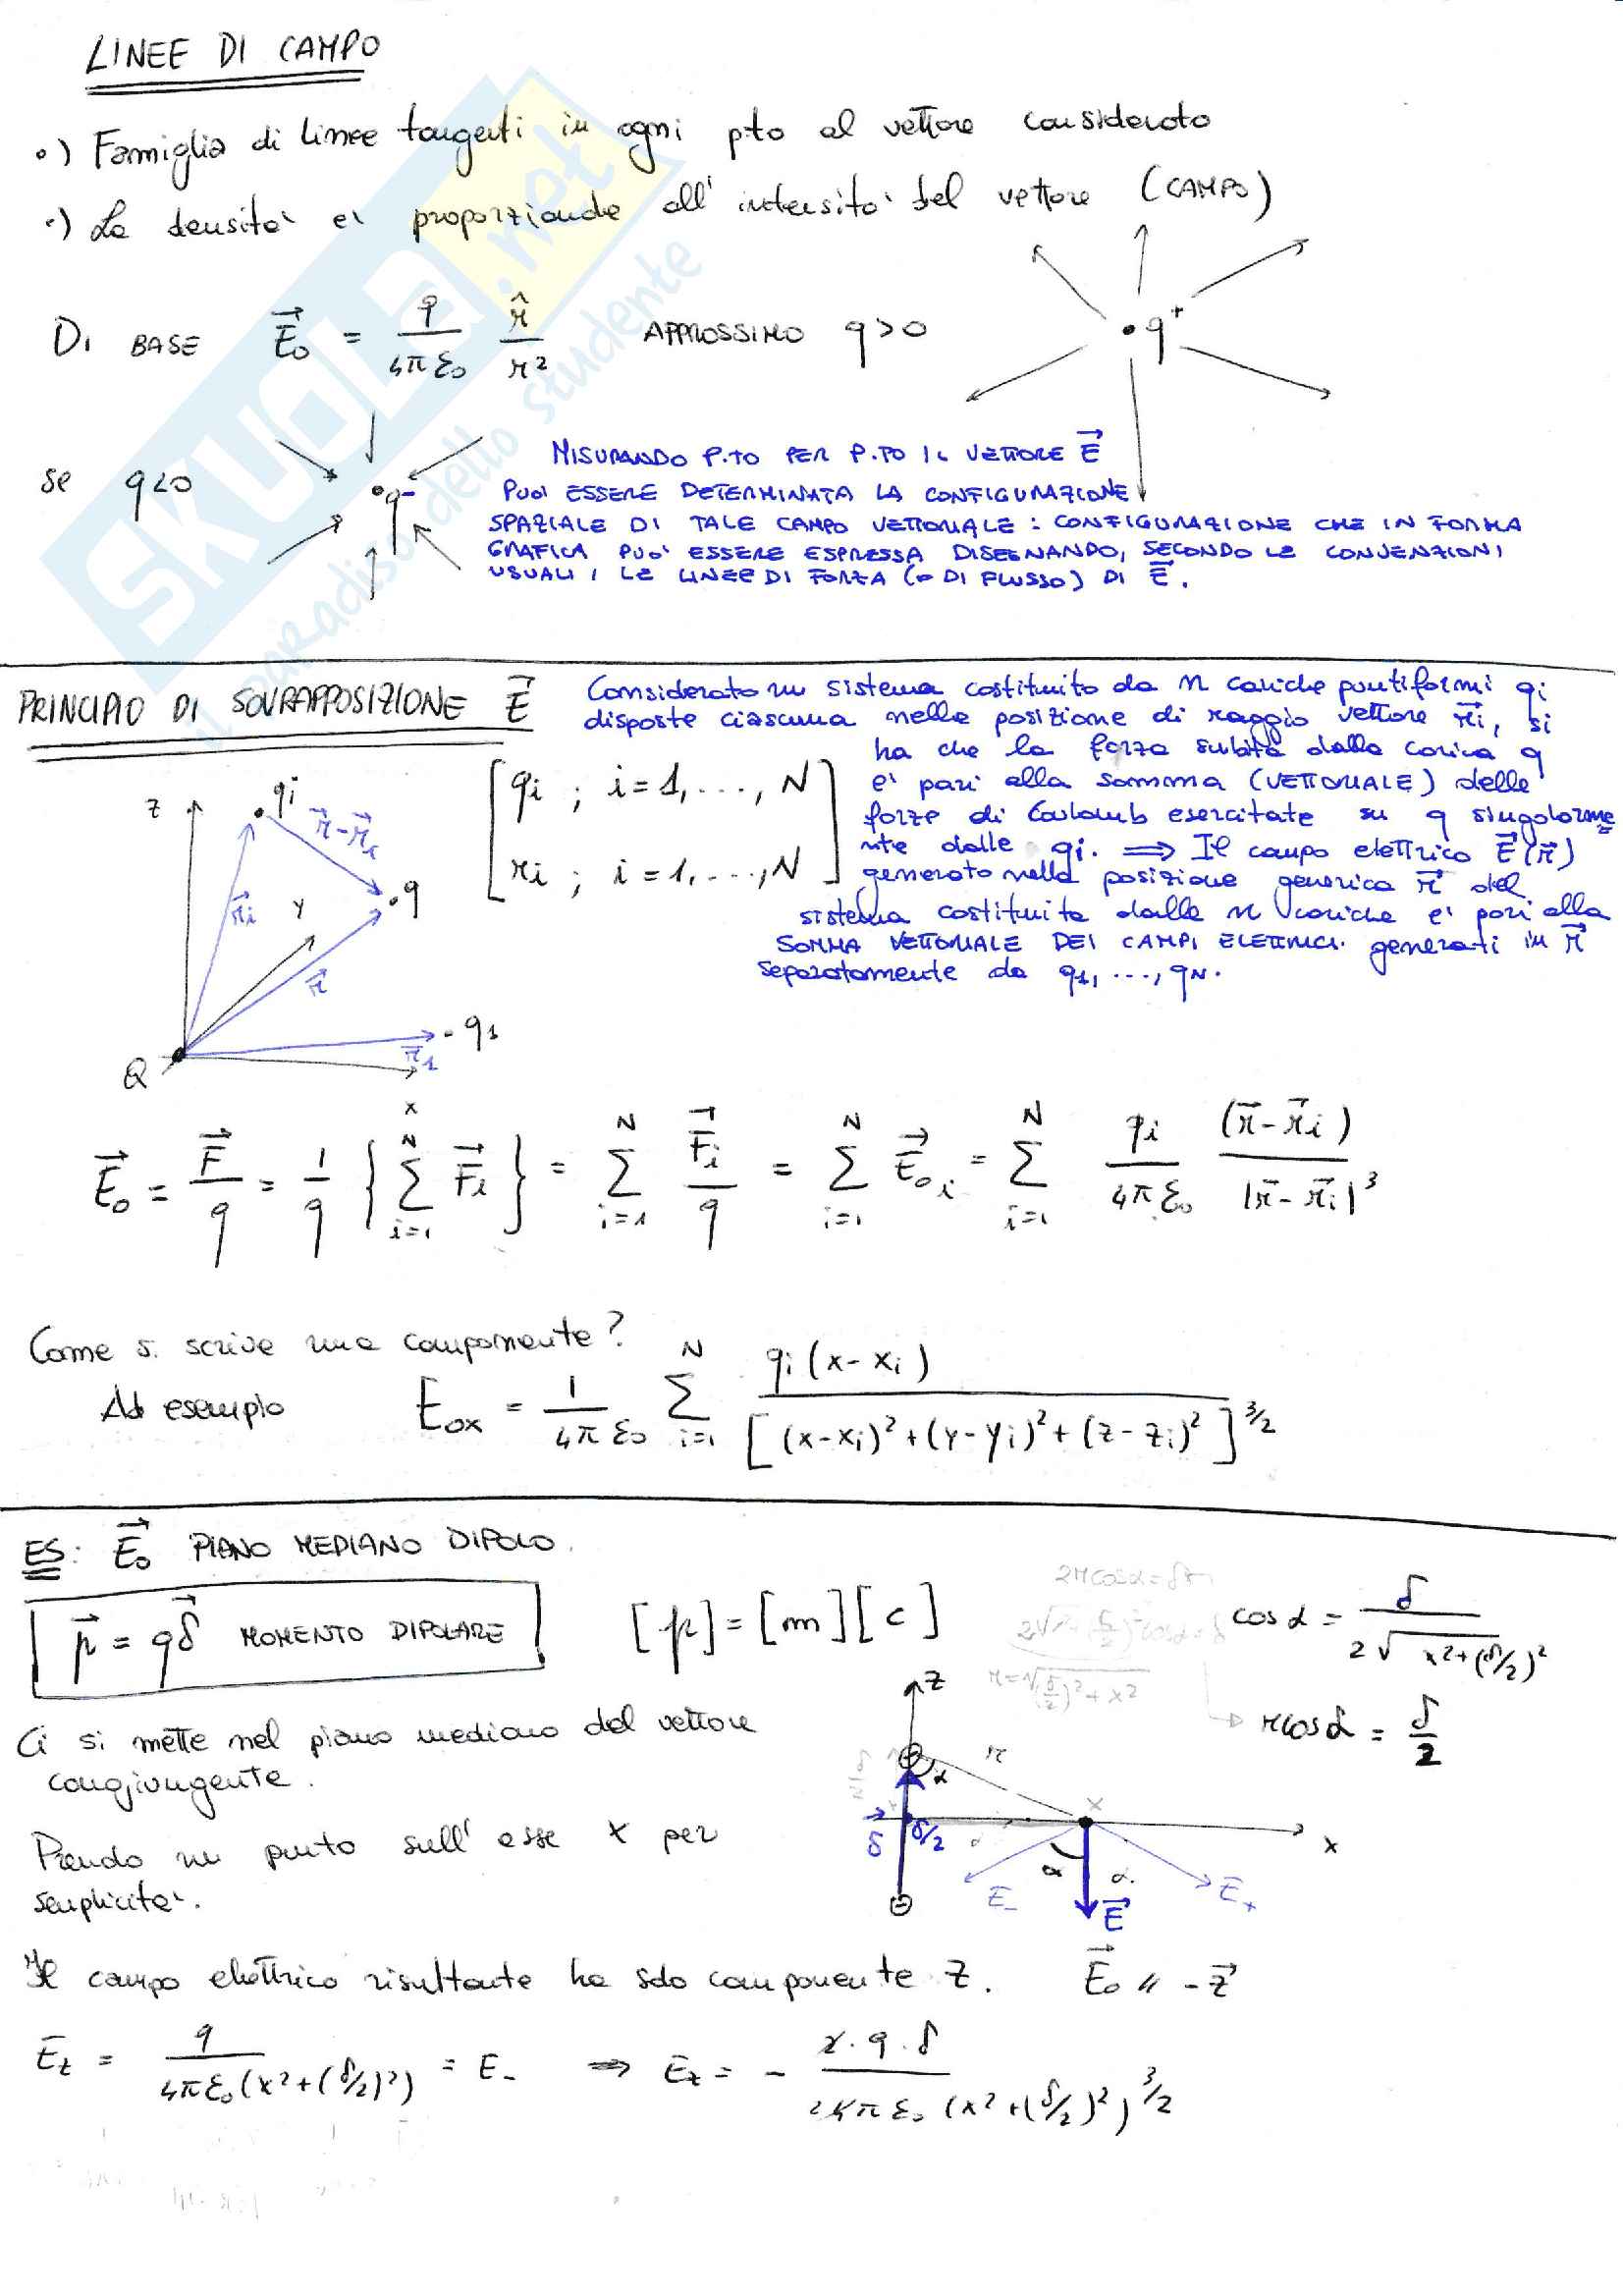 LINEE DI CAMPO
•) Famiglia di linee tangenti in ogni p.to al vettore considerato
•) La densita' e' proporzionale all'intensita' del vettore (CAMPO)
DI BASE E⃗₀ = q/(4πε₀) r̂/r² APPROSSIMO q>0
q⁺
se q<0
q⁻
MISURANDO P.TO PER P.TO IL VETTORE E⃗
PUO' ESSERE DETERMINATA LA CONFIGURAZIONE
SPAZIALE DI TALE CAMPO VETTORIALE: CONFIGURAZIONE CHE IN FORMA
GRAFICA PUO' ESSERE ESPRESSA DISEGNANDO, SECONDO LE CONVENZIONI
USUALI, LE LINEE DI FORZA (O DI FLUSSO) DI E⃗.
SKUOLA.net
il paradiso dello studente
PRINCIPIO DI SOVRAPPOSIZIONE E⃗
Considerato un sistema costituito da n cariche puntiformi qi
disposte ciascuna nella posizione di raggio vettore r⃗i, si
ha che la forza subita dalla carica q
e' pari alla somma (VETTORIALE) delle
forze di Coulomb esercitate su q singolarme=
nte dalle qi. ⟹ Il campo elettrico E⃗(r⃗)
generato nella posizione generica r⃗ del
sistema costituito dalle n cariche e' pari alla
SOMMA VETTORIALE DEI CAMPI ELETTRICI generati in r⃗
separatamente da q₁, ..., qN.
[qi ; i=1,...,N]
[ri ; i=1,...,N]
z
qi
r⃗-r⃗₁
r⃗i
y
q
r⃗
q₁
r⃗₁
Q
x
E⃗₀ = F⃗/q = 1/q {∑_{i=1}^{N} F⃗i} = ∑_{i=1}^{N} F⃗i/q = ∑_{i=1}^{N} E⃗₀i = ∑_{i=1}^{N} qi/(4πε₀) (r⃗-r⃗i)/|r⃗-r⃗i|³
Come si scrive una componente?
Ad esempio E₀x = 1/(4πε₀) ∑_{i=1}^{N} qi(x-xi)/[(x-xi)²+(y-yi)²+(z-zi)²]^{3/2}
ES: E⃗₀ PIANO MEDIANO DIPOLO.
p⃗ = qδ⃗ MOMENTO DIPOLARE
[p]=[m][c]
cos α = δ/(2√(x²+(δ/2)²))
r=√((δ/2)²+x²)
r cos α = δ/2
Ci si mette nel piano mediano del vettore
congiungente.
Prendo un punto sull'asse x per
semplicita'.
z
⊕
α
r
x
δ
δ/2
α
α
E₋
E⃗
E₊
x
⊖
Il campo elettrico risultante ha solo componente z. E⃗₀ // -z⃗
E₊ = q/(4πε₀(x²+(δ/2)²)) = E₋ ⟹ Ez = - 2·q·δ/(2·4πε₀(x²+(δ/2)²)^{3/2})